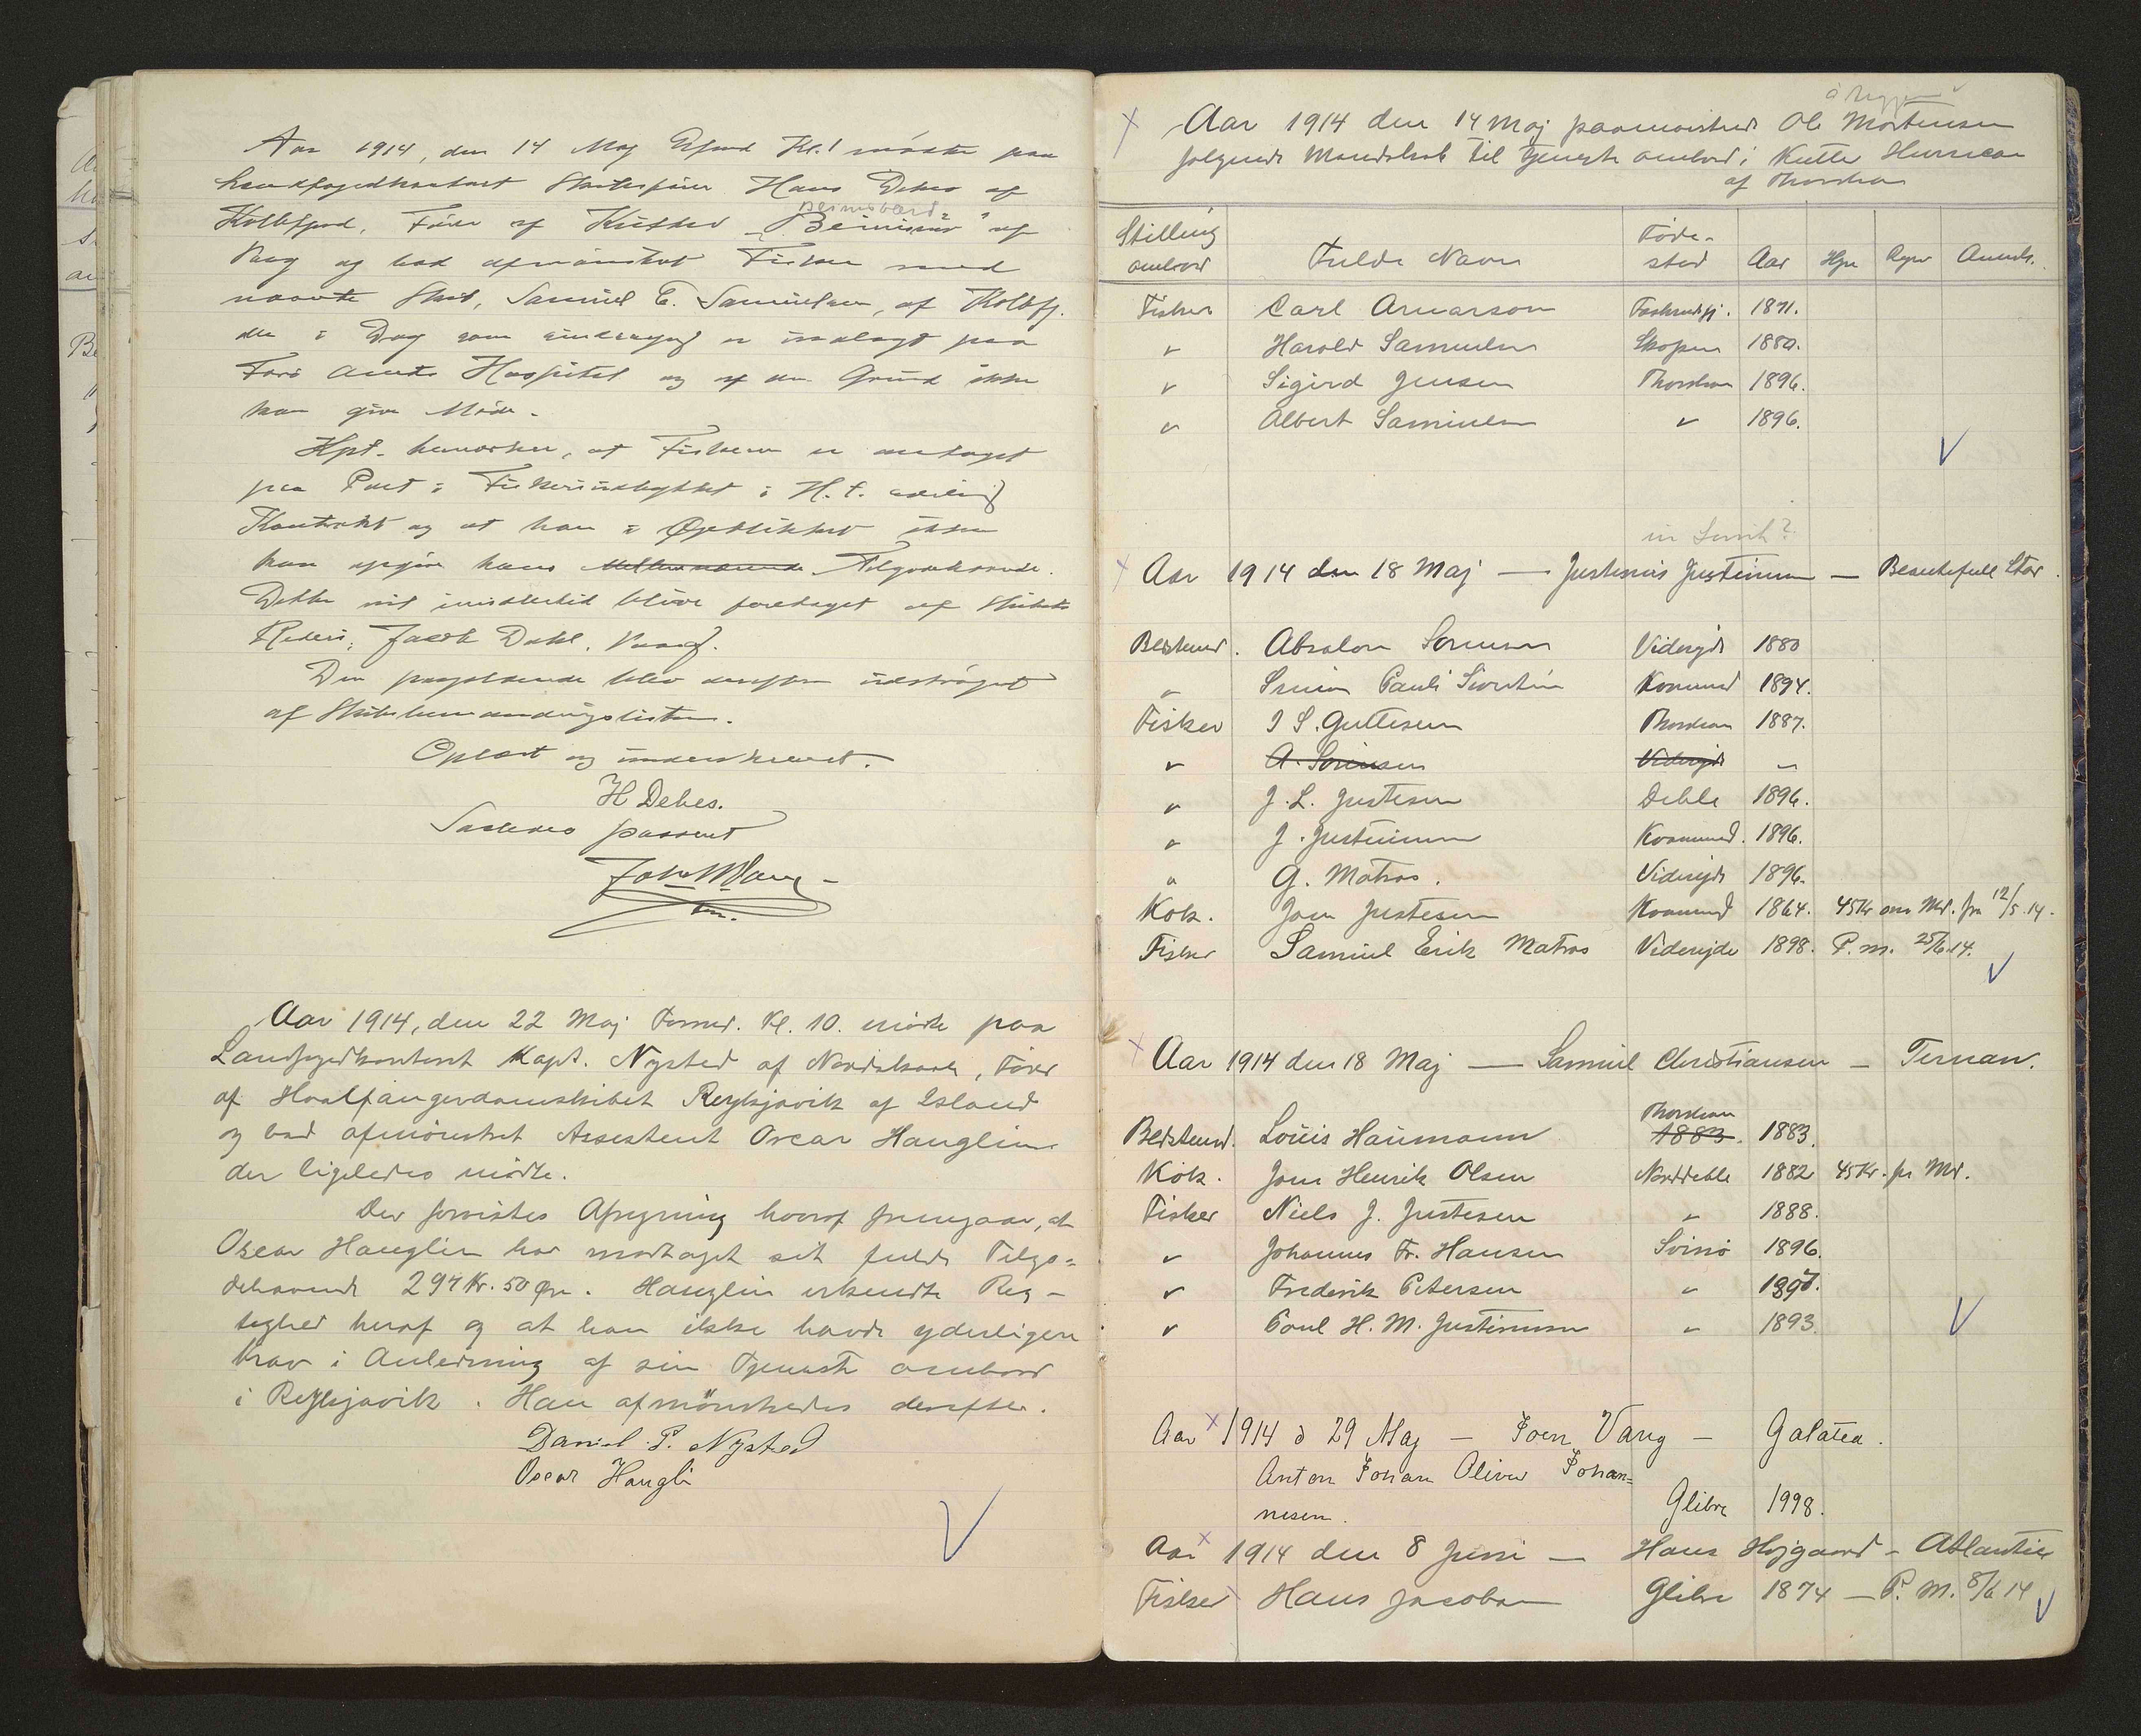 Aar 1914, den 14 Maj Efmd Kl. 1 mødte paa
Landfogedkontoret Skibsfører Hans Debes af
Kollefjord, Fører af Kutter "Beinisvør" af
Vaag og bad afmønstret Fisker med
nævnte Skib, Samuel E. Samuelsen, af Kollefj.
der i Dag som er indlagt paa
Færø Amts Hospital og af den Grund ikke
kan give Møde.
Kpt. bemærker, at Fiskeren er antaget
paa Part i Fiskeriudbyttet i H. t.
Kontrakt og at han i Øjeblikket ikke
kan opgive hans Tilgodehavende.
Dette vil imidlertid blive foretaget af Skibets
Rederi, Jacob Dahl, Vaag.
Den paagældende blev derefter udstrøget
af Skibsbemandingslisten.
Oplæst og underskrevet.
H Debes.
Saaledes passeret
Aar 1914, den 22 Maj Formd. Kl. 10. mødte paa
Landfogedkontoret Kapt. Nysted af Nordskaale, Fører
af Hvalfangerdampskibet Reykjavik af Island
og bad afmønstret Assistent Oscar Hauglin
der ligeledes mødte.
Der forevistes Afregning hvoraf fremgaar, at
Oscar Hauglin har modtaget sit fulde Tilgo=
dehavende 297 Kr. 50 Øre. Hauglin erkendte Rig-
tighed heraf og at han ikke havde yderligere
Krav i Anledning af sin Tjeneste ombord
i Reykjavik. Han afmønstredes derefter.
Daniel P. Nysted
Oscar Haugli
Aar 1914 den 14 Maj paamønstrede Ole Mortensen
følgende Mandskab til Tjeneste ombord i Kutter Hurricane
af Thorshavn
Stilling ombord Fulde Navn Føde-sted Aar Hyre Anmk.
Fisker Carl Arnarson 1871.
" Harald Samuelsen Skopen 1880.
" Sigurd Jensen Thorshavn 1896.
" Albert Samuelsen " 1896.
Aar 1914 den 18 Maj — Justinus Justinussen — Beautefull Star.
Bedstemd. Absalon Sørensen Viderejde 1880
" Simon Pauli Kvannesund 1894.
Fisker J S. Guttesen Thorshavn 1887.
" A. Sørensen Viderejde "
" J. L. Justesen Deble 1896.
" J. Justinussen Kvannesund. 1896.
" G. Matras. Viderejde 1896.
Kok. Joen Justesen Kvannesund 1864. 45 Kr om Md. fra 12/5 14.
Fisker Samuel Erik Matras Viderejde 1898. P. m. 25/6 14.
Aar 1914 den 18 Maj — Samuel Christiansen — Ternan.
Thorshavn
Bedstemd. Louis Haumann 1883. 1883.
Kok. Jens Henrik Olsen Norddeble 1882 45 Kr. pr Md.
Fisker Niels J. Justesen " 1888.
" Johannes Fr. Hansen Svinø 1896.
" Frederik Petersen " 1897.
" Poul H. M. Justinussen " 1893.
Aar 1914 d 29 Maj — Joen Vang — Galatea.
Anton Johan Oliver Johan=
nesen. Glibre 1998.
Aar 1914 den 8 Juni — Hans Højgaard - Atlantic
Fisker Hans Jacobsen Glibre 1874 — P. M. 8/6 14